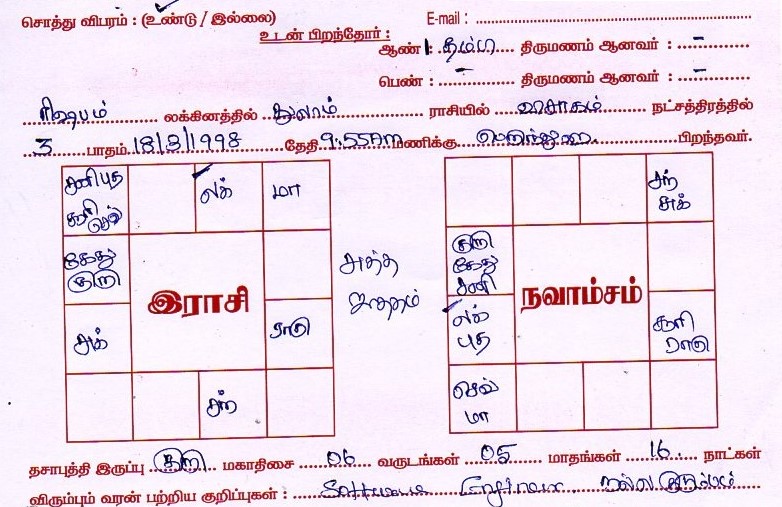 சொத்து விபரம் : (உண்டு / இல்லை) E-mail :
உடன் பிறந்தோர் :
ஆண் 1 : தம்பி திருமணம் ஆனவர் : -
பெண் : - திருமணம் ஆனவர் : -
ரிஷபம் லக்கினத்தில் துலாம் ராசியில் விசாகம் நட்சத்திரத்தில்
3 பாதம் 18/3/1998 தேதி 9.55Am மணிக்கு பிறந்தவர்.
சனி புத சூரி செவ்
லக்
மா
கேது குரு
சுக்
ராகு
சந்
இராசி
சந் சுக்
குரு கேது சனி
லக் புத
சூரி ராகு
செவ் மா
நவாம்சம்
தசாபுத்தி இருப்பு குரு மகாதிசை 06 வருடங்கள் 05 மாதங்கள் 16 நாட்கள்
விரும்பும் வரன் பற்றிய குறிப்புகள் : நல்ல குடும்பம்